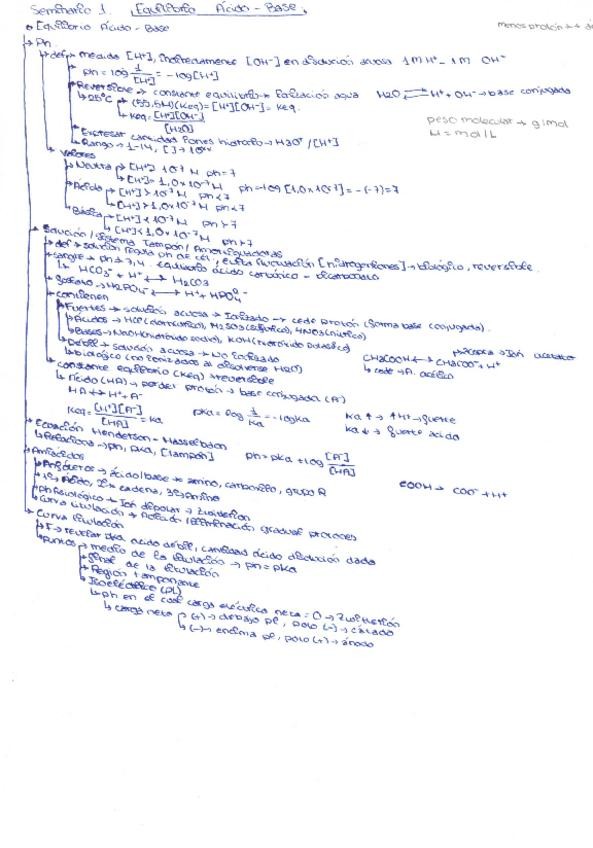 Seminario 1. Equilibrio Ácido-Base.
menos protón →
• Equilibrio Ácido-Base
→ pH
→ def → medida [H+], indirectamente [OH-] en disolución acuosa 1M H+ - 1M OH-
pH = log 1/[H+] = -log[H+]
→ Reversible → constante equilibrio → ionización agua H2O ⇌ H+ + OH- → base conjugada
→ 25ºC → (55,5M)(Keq) = [H+][OH-] = Keq.
→ Keq = [H+][OH-]/[H2O]
peso molecular → g/mol
M = mol/L
→ Expresar cantidad iones hidrógeno → H3O+/[H+]
→ Rango → 1-14,
→ Valores
→ Neutra → [H+] 10-7 M pH = 7
→ [H+] = 1,0x10-7 M pH = -log [1,0x10-7] = -(-7) = 7
→ Ácida → [H+] > 10-7 M pH < 7
→ [H+] > 1,0x10-7 M pH < 7
→ Básica → [H+] < 10-7 M pH > 7
→ [H+] < 1,0x10-7 M pH > 7
→ Solución / Sistema Tampón / Amortiguadoras
→ def → solución regula pH de cél, evita fluctuación [hidrogeniones] → biológico, reversible.
→ Sangre → pH = 7,4. equilibrio ácido carbónico - bicarbonato
→ HCO3- + H+ ⟷ H2CO3
→ Fosfato → H2PO4- ⟷ H+ + HPO4
→ Contienen
→ Fuertes → solución acuosa → Ionizado → cede protón (forma base conjugada).
→ Ácidos → HCl (clorhídrico), H2SO4 (sulfúrico), HNO3 (nítrico)
→ Bases → NaOH (hidróxido sodio), KOH (hidróxido potásico)
→ Débil → solución acuosa → No Ionizado
→ biológico (no ionizados al disolverse H2O)
→ acepta → Ion acetato
CH3COOH ⟷ CH3COO- + H+
→ cede → A. acético
→ constante equilibrio (Keq) → reversible
→ Ácido (HA) → perder protón → base conjugada (A-)
HA ⟷ H+ + A-
Keq = [H+][A-]/[HA] = Ka pKa = log 1/Ka = -logKa Ka ↑ → ↑H+ → fuerte
Ka ↓ → fuerte ácido
→ Ecuación Henderson - Hasselbach
→ Relaciona → pH, pKa, [tampón] pH = pKa + log [A-]/[HA]
→ Aminoácidos
→ Anfóteros → ácido/base → amino, carboxilo, grupo R COOH → COO- + H+
→ 1º Ácido, 2º cadena, 3º Amino
→ pH fisiológico → Ion dipolar → Zwitterión
→ Curva titulación → Adición/Eliminación gradual protones
→ Curva titulación
→ F → revelar pka ácido débil, cantidad ácido disolución dada
→ Puntos → medio de la titulación → pH = pKa
→ final de la titulación
→ Región tamponante
→ Isoeléctrico (pI)
→ pH en el cual carga eléctrica neta = 0 → Zwitterión
→ carga neta → (+) → debajo pI, polo (-) → cátodo
→ (-) → encima pI, polo (+) → ánodo